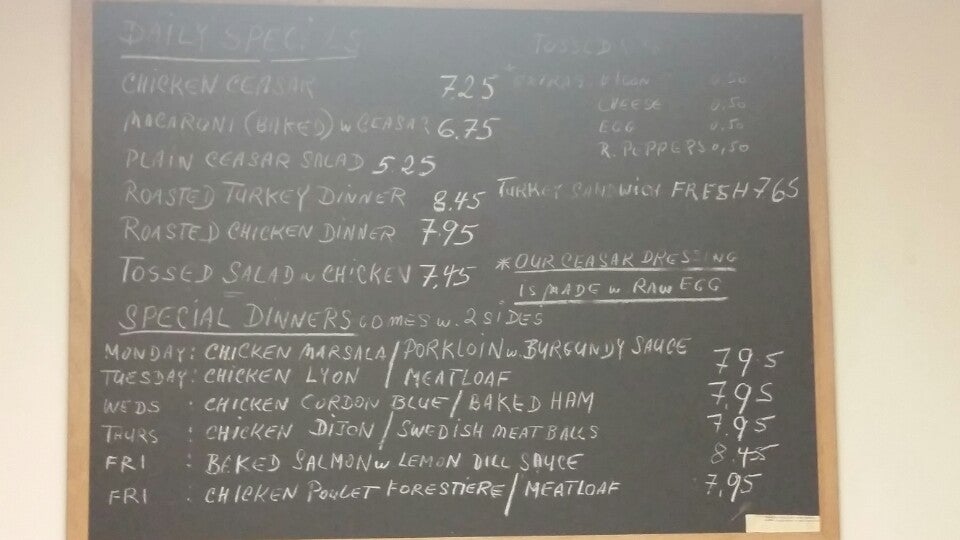 DAILY SPECILS
CHICKEN CEASAR 7.25
MACARUNI (BAKED) w CEASAR 6.75
PLAIN CEASAR SALAD 5.25
ROASTED TURKEY DINNER 8.45
ROASTED CHICKEN DINNER 7.95
TOSSED SALAD w CHICKEN 7.45
TOSSED
* EXTRAS 0.50
CHEESE 0.50
EGG 0.50
R. PEPPERS 0,50
TURKEY SANDWICH FRESH 7.65
* OUR CEASAR DRESSING
IS MADE w RAW EGG
SPECIAL DINNERS COMES w. 2 SIDES
MONDAY: CHICKEN MARSALA / PORKLOIN w. BURGUNDY SAUCE 7.95
TUESDAY: CHICKEN LYON / MEATLOAF 7.95
WEDS : CHICKEN CORDON BLUE / BAKED HAM 7.95
THURS : CHICKEN DIJON / SWEDISH MEAT BALLS
FRI : BAKED SALMON w LEMON DILL SAUCE 8.45
FRI : CHICKEN POULET FORESTIERE / MEATLOAF 7.95